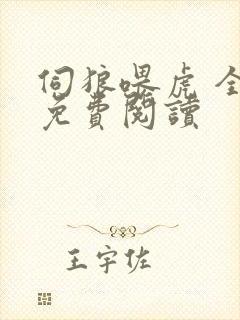 伺狼喂虎 全
免費閱讀
王宇佐